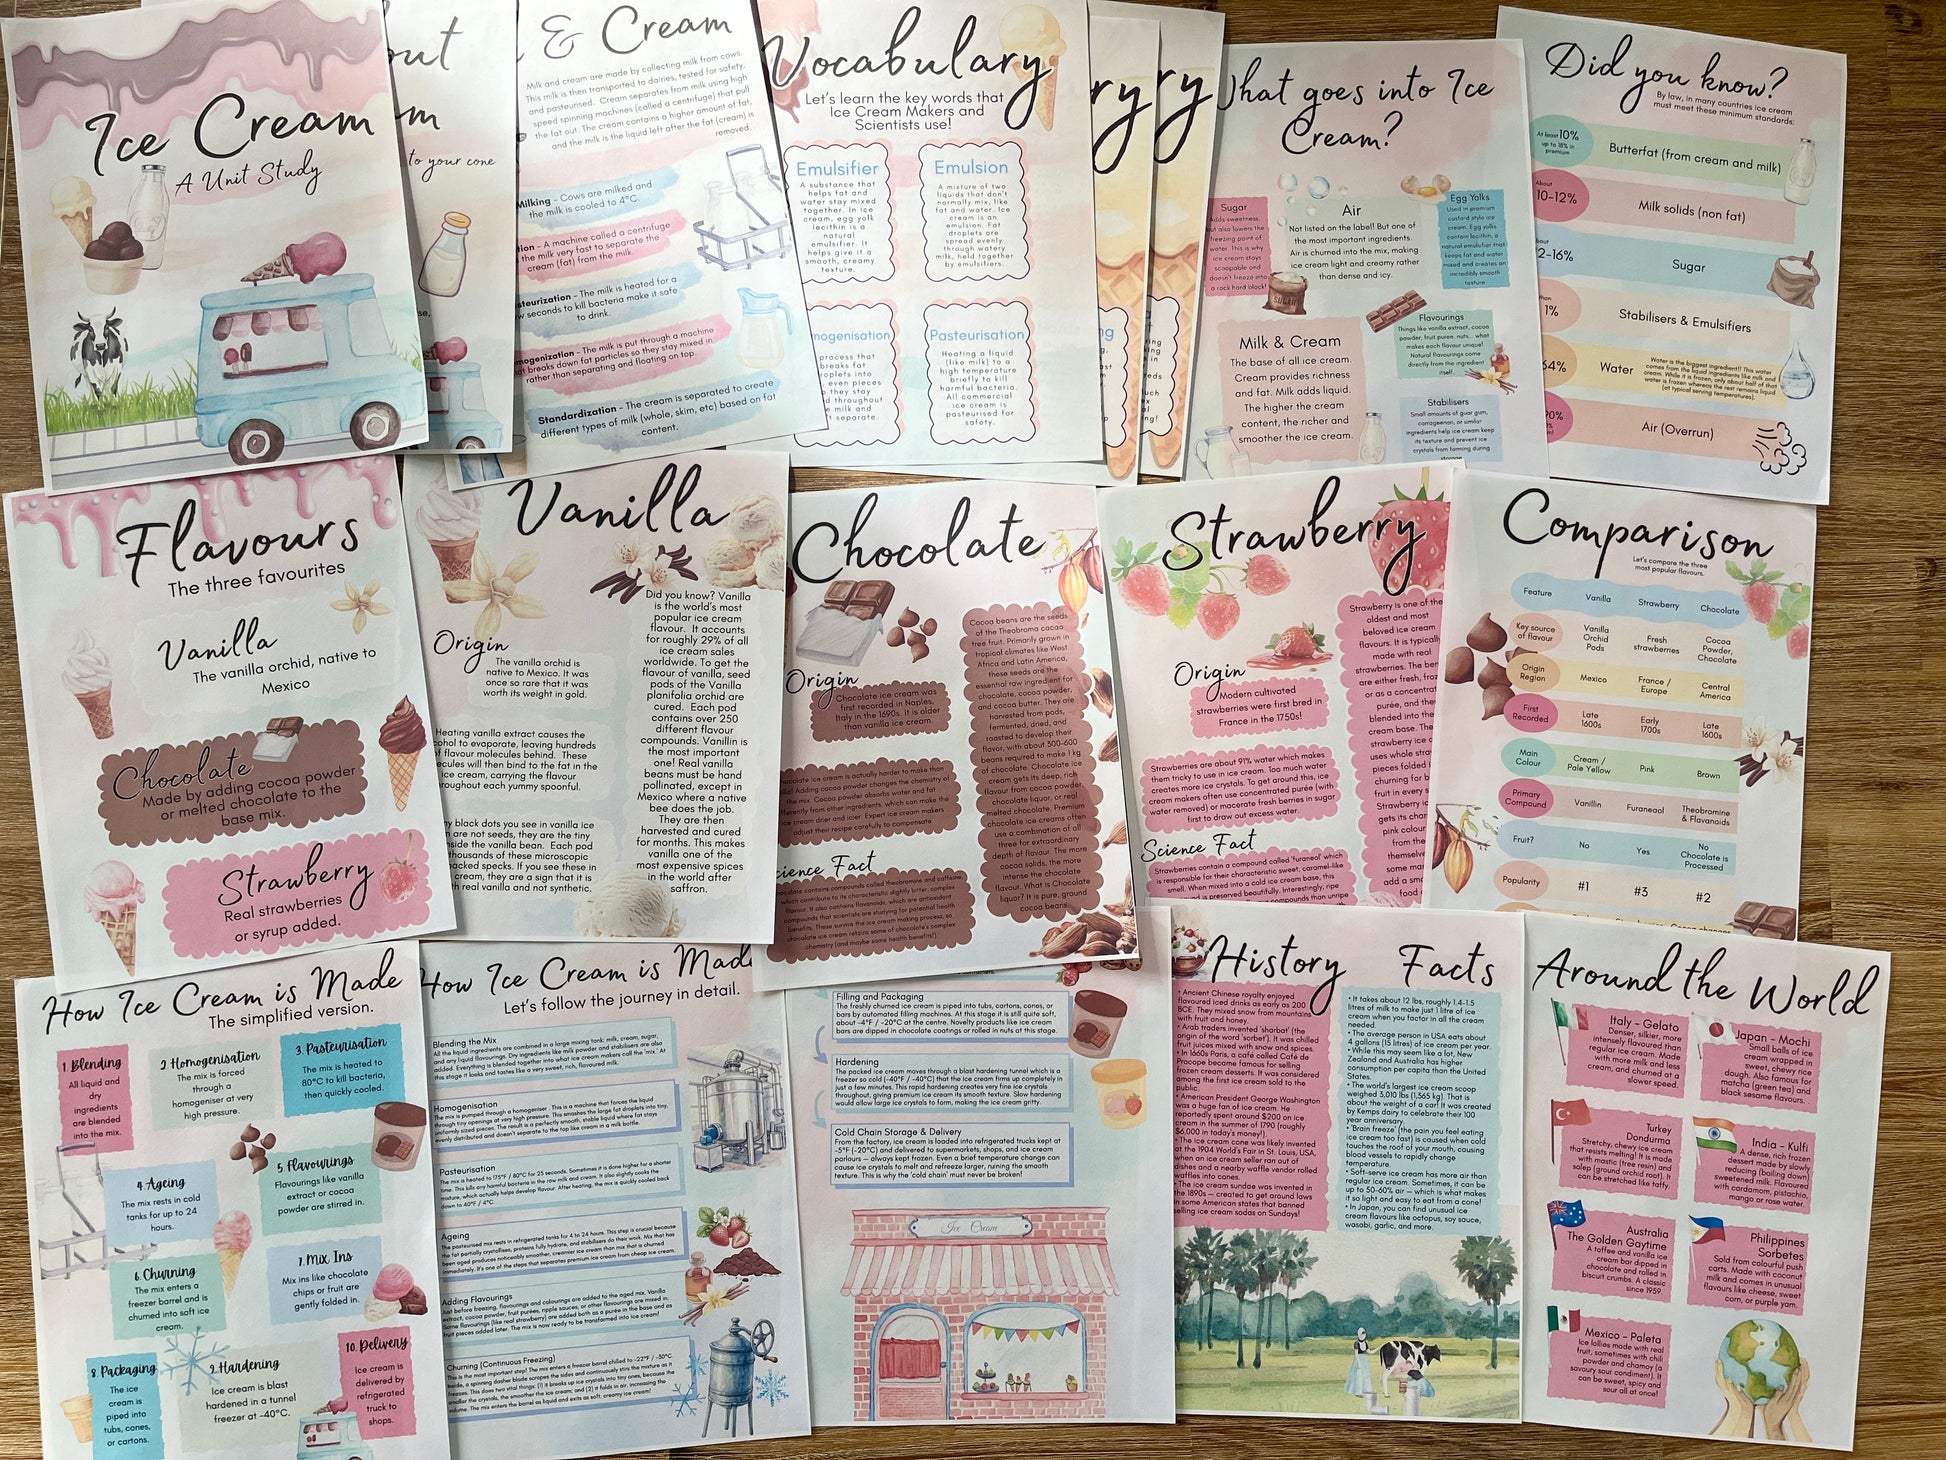 Ice Cream
A Unit Study
out
m
to your cone
& Cream
Milk and cream are made by collecting milk from cows.
This milk is then transported to dairies, tested for safety,
and pasteurised. Cream separates from milk using high
speed spinning machines (called a centrifuge) that pull
the fat out. The cream contains a higher amount of fat,
and the milk is the liquid left after the fat (cream) is
removed.
Milking - Cows are milked and
the milk is cooled to 4°C.
tion - A machine called a centrifuge
the milk very fast to separate the
cream (fat) from the milk.
steurization - The milk is heated for a
w seconds to kill bacteria make it safe
to drink.
mogenization - The milk is put through a machine
at breaks down fat particles so they stay mixed in
rather than separating and floating on top.
Standardization - The cream is separated to create
different types of milk (whole, skim, etc) based on fat
content.
Vocabulary
Let's learn the key words that
Ice Cream Makers and
Scientists use!
Emulsifier
A substance that
helps fat and
water stay mixed
together. In ice
cream, egg yolk
lecithin is a
natural
emulsifier. It
helps give it a
smooth, creamy
texture.
Emulsion
A mixture of two
liquids that don't
normally mix, like
fat and water. Ice
cream is an
emulsion. Fat
droplets are
spread evenly
through watery
milk, held together
by emulsifiers.
mogenisation
process that
breaks fat
oplets into
even pieces
they stay
d throughout
milk and
t separate.
Pasteurisation
Heating a liquid
(like milk) to a
high temperature
briefly to kill
harmful bacteria.
All commercial
ice cream is
pasteurised for
safety.
ry
ry
What goes into Ice
Cream?
Sugar
Adds sweetness
but also lowers the
freezing point of
water. This is why
ice cream stays
scoopable and
doesn't freeze into
a rock hard block!
Air
Not listed on the label! But one of
the most important ingredients.
Air is churned into the mix, making
ice cream light and creamy rather
than dense and icy.
Egg Yolks
Used in premium
custard style ice
cream. Egg yolks
contain lecithin, a
natural emulsifier that
keeps fat and water
mixed and creates an
incredibly smooth
texture
SUGAR
Milk & Cream
The base of all ice cream.
Cream provides richness
and fat. Milk adds liquid.
The higher the cream
content, the richer and
smoother the ice cream.
Flavourings
Things like vanilla extract, cocoa
powder, fruit puree, nuts... what
makes each flavour unique!
Natural flavourings come
directly from the ingredient
itself.
Stabilisers
Small amounts of guar gum,
carrageenan, or similar
ingredients help ice cream keep
its texture and prevent ice
crystals from forming during
storage
Did you know?
By law, in many countries ice cream
must meet these minimum standards:
At least 10%
up to 18% in
premium
Butterfat (from cream and milk)
About
10-12%
Milk solids (non fat)
bout
2-16%
Sugar
than
1%
Stabilisers & Emulsifiers
64%
Water
Water is the biggest ingredient!! This water
comes from the liquid ingredients like milk and
cream. While it is frozen, only about half of that
water is frozen whereas the rest remains liquid
(at typical serving temperatures).
Air (Overrun)
Flavours
The three favourites
Vanilla
The vanilla orchid, native to
Mexico
Chocolate
Made by adding cocoa powder
or melted chocolate to the
base mix.
Strawberry
Real strawberries
or syrup added.
Vanilla
Origin
The vanilla orchid is
native to Mexico. It was
once so rare that it was
worth its weight in gold.
Heating vanilla extract causes the
ohol to evaporate, leaving hundreds
f flavour molecules behind. These
ecules will then bind to the fat in the
ice cream, carrying the flavour
roughout each yummy spoonful.
ny black dots you see in vanilla ice
m are not seeds, they are the tiny
nside the vanilla bean. Each pod
thousands of these microscopic
acked specks. If you see these in
cream, they are a sign that it is
h real vanilla and not synthetic.
Did you know? Vanilla
is the world's most
popular ice cream
flavour. It accounts
for roughly 29% of all
ice cream sales
worldwide. To get the
flavour of vanilla, seed
pods of the Vanilla
planifolia orchid are
cured. Each pod
contains over 250
different flavour
compounds. Vanillin is
the most important
one! Real vanilla
beans must be hand
pollinated, except in
Mexico where a native
bee does the job.
They are then
harvested and cured
for months. This makes
vanilla one of the
most expensive spices
in the world after
saffron.
Chocolate
Origin
Chocolate ice cream was
first recorded in Naples,
Italy in the 1690s. It is older
than vanilla ice cream.
hocolate ice cream is actually harder to make than
Adding cocoa powder changes the chemistry of
the mix. Cocoa powder absorbs water and fat
fferently from other ingredients, which can make the
ce cream drier and icier. Expert ice cream makers
adjust their recipe carefully to compensate.
cience Fact
ocolate contains compounds called theobromine and caffeine,
which contribute to its characteristic slightly bitter, complex
flavour. It also contains flavanoids, which are antioxidant
compounds that scientists are studying for potential health
benefits. These survive the ice cream making process, so
chocolate ice cream retains some of chocolate's complex
chemistry (and maybe some health benefits!).
Cocoa beans are the seeds
of the Theobroma cacao
tree fruit. Primarily grown in
tropical climates like West
Africa and Latin America,
these seeds are the
essential raw ingredient for
chocolate, cocoa powder,
and cocoa butter. They are
harvested from pods,
fermented, dried, and
roasted to develop their
flavor, with about 300-600
beans required to make 1 kg
of chocolate. Chocolate ice
cream gets its deep, rich
flavour from cocoa powder,
chocolate liquor, or real
melted chocolate. Premium
chocolate ice creams often
use a combination of all
three for extraordinary
depth of flavour. The more
cocoa solids, the more
intense the chocolate
flavour. What is Chocolate
liquor? It is pure, ground
cocoa beans.
Strawberry
Origin
Modern cultivated
strawberries were first bred in
France in the 1750s!
Strawberries are about 91% water which makes
them tricky to use in ice cream. Too much water
creates more ice crystals. To get around this, ice
cream makers often use concentrated purée (with
water removed) or macerate fresh berries in sugar
first to draw out excess water.
Science Fact
Strawberries contain a compound called 'furaneol' which
is responsible for their characteristic sweet, caramel-like
smell. When mixed into a cold ice cream base, this
is preserved beautifully. Interestingly, ripe
Strawberry is one of the
oldest and most
beloved ice cream
flavours. It is typically
made with real
strawberries. The ber
are either fresh, froz
or as a concentrat
purée, and then
blended into the
cream base. The
strawberry ice c
uses whole straw
pieces folded i
churning for b
fruit in every s
Strawberry ic
gets its char
pink colour
from the
themselve
some man
add a sma
food
Comparison
Let's compare the three
most popular flavours.
Feature Vanilla Strawberry Chocolate
Key source of flavour Vanilla Orchid Pods Fresh strawberries Cocoa Powder, Chocolate
Origin Region Mexico France / Europe Central America
First Recorded Late 1600s Early 1700s Late 1600s
Main Colour Cream / Pale Yellow Pink Brown
Primary Compound Vanillin Furaneol Theobromine & Flavanoids
Fruit? No Yes No Chocolate is Processed
Popularity #1 #3 #2
How Ice Cream is Made
The simplified version.
1. Blending
All liquid and
dry
ingredients
are blended
into the mix.
2. Homogenisation
The mix is forced
through a
homogeniser at very
high pressure.
3. Pasteurisation
The mix is heated to
80°C to kill bacteria,
then quickly cooled.
4. Ageing
The mix rests in cold
tanks for up to 24
hours.
5. Flavourings
Flavourings like vanilla
extract or cocoa
powder are stirred in.
6. Churning
The mix enters a
freezer barrel and is
churned into soft ice
cream.
7. Mix Ins
Mix ins like chocolate
chips or fruit are
gently folded in.
8. Packaging
The ice
cream is
piped into
tubs, cones,
or cartons.
9. Hardening
Ice cream is blast
hardened in a tunnel
freezer at -40°C.
10. Delivery
Ice cream is
delivered by
refrigerated
truck to
shops.
How Ice Cream is Made
Let's follow the journey in detail.
Blending the Mix
All the liquid ingredients are combined in a large mixing tank; milk, cream, sugar,
and any liquid flavourings. Dry ingredients like milk powder and stabilisers are also
added. Everything is blended together into what ice cream makers call the 'mix.' At
this stage it looks and tastes like a very sweet, rich, flavoured milk.
Homogenisation
The mix is pumped through a homogeniser. This is a machine that forces the liquid
through tiny openings at very high pressure. This smashes the large fat droplets into tiny,
uniformly sized pieces. The result is a perfectly smooth, stable liquid where fat stays
evenly distributed and doesn't separate to the top like cream in a milk bottle.
Pasteurisation
The mix is heated to 175°F / 80°C for 25 seconds. Sometimes it is done higher for a shorter
time. This kills any harmful bacteria in the raw milk and cream. It also slightly cooks the
mixture, which actually helps develop flavour. After heating, the mix is quickly cooled back
down to 40°F / 4°C.
Ageing
The pasteurised mix rests in refrigerated tanks for 4 to 24 hours. This step is crucial because
the fat partially crystallises, proteins fully hydrate, and stabilisers do their work. Mix that has
been aged produces noticeably smoother, creamier ice cream than mix that is churned
immediately. It's one of the steps that separates premium ice cream from cheap ice cream
Adding Flavourings
Just before freezing, flavourings and colourings are added to the aged mix. Vanilla
extract, cocoa powder, fruit purées, ripple sauces, or other flavourings are mixed in.
Some flavourings (like real strawberry) are added both as a purée in the base and as
fruit pieces added later. The mix is now ready to be transformed into ice cream!
Churning (Continuous Freezing)
This is the most important step! The mix enters a freezer barrel chilled to -22°F / -30°C.
Inside, a spinning dasher blade scrapes the sides and continuously stirs the mixture as it
freezes. This does two vital things: (1) it breaks up ice crystals into tiny ones, because the
smaller the crystals, the smoother the ice cream; and (2) it folds in air, increasing the
volume. The mix enters the barrel as liquid and exits as soft, creamy ice cream!
Filling and Packaging
The freshly churned ice cream is piped into tubs, cartons, cones, or
bars by automated filling machines. At this stage it is still quite soft,
about -4°F / -20°C at the centre. Novelty products like ice cream
bars are dipped in chocolate coatings or rolled in nuts at this stage.
Hardening
The packed ice cream moves through a blast hardening tunnel which is a
freezer so cold (-40°F / -40°C) that the ice cream firms up completely in
just a few minutes. This rapid hardening creates very fine ice crystals
throughout, giving premium ice cream its smooth texture. Slow hardening
would allow large ice crystals to form, making the ice cream gritty.
Cold Chain Storage & Delivery
From the factory, ice cream is loaded into refrigerated trucks kept at
-5°F (-20°C) and delivered to supermarkets, shops, and ice cream
parlours — always kept frozen. Even a brief temperature change can
cause ice crystals to melt and refreeze larger, ruining the smooth
texture. This is why the 'cold chain' must never be broken!
Ice Cream
History Facts
• Ancient Chinese royalty enjoyed
flavoured iced drinks as early as 200
BCE. They mixed snow from mountains
with fruit and honey.
• Arab traders invented 'sharbat' (the
origin of the word 'sorbet'). It was chilled
fruit juices mixed with snow and spices.
• In 1660s Paris, a café called Café de
Procope became famous for selling
frozen cream desserts. It was considered
among the first ice cream sold to the
public.
• American President George Washington
was a huge fan of ice cream. He
reportedly spent around $200 on ice
cream in the summer of 1790 (roughly
$6,000 in today's money!).
• The ice cream cone was likely invented
at the 1904 World's Fair in St. Louis, USA,
when an ice cream seller ran out of
dishes and a nearby waffle vendor rolled
waffles into cones.
• The ice cream sundae was invented in
the 1890s — created to get around laws
in some American states that banned
selling ice cream sodas on Sundays!
• It takes about 12 lbs, roughly 1.4-1.5
litres of milk to make just 1 litre of ice
cream when you factor in all the cream
needed.
• The average person in USA eats about
4 gallons (15 litres) of ice cream per year.
• While this may seem like a lot, New
Zealand and Australia has higher
consumption per capita than the United
States.
• The world's largest ice cream scoop
weighed 3,010 lbs (1,365 kg). That is
about the weight of a car! It was created
by Kemps dairy to celebrate their 100
year anniversary.
• 'Brain freeze' (the pain you feel eating
ice cream too fast) is caused when cold
touches the roof of your mouth, causing
blood vessels to rapidly change
temperature.
• Soft-serve ice cream has more air than
regular ice cream. Sometimes, it can be
up to 50-60% air — which is what makes
it so light and easy to eat from a cone!
• In Japan, you can find unusual ice
cream flavours like octopus, soy sauce,
wasabi, garlic, and more.
Around the World
Italy - Gelato
Denser, silkier, more
intensely flavoured than
regular ice cream. Made
with more milk and less
cream, and churned at a
slower speed.
Japan - Mochi
Small balls of ice
cream wrapped in
sweet, chewy rice
dough. Also famous for
matcha (green tea) and
black sesame flavours.
Turkey
Dondurma
Stretchy, chewy ice cream
that resists melting! It is made
with mastic (tree resin) and
salep (ground orchid root). It
can be stretched like taffy.
India - Kulfi
A dense, rich frozen
dessert made by slowly
reducing (boiling down)
sweetened milk. Flavoured
with cardamom, pistachio,
mango or rose water.
Australia
The Golden Gaytime
A toffee and vanilla ice
cream bar dipped in
chocolate and rolled in
biscuit crumbs. A classic
since 1959.
Philippines
Sorbetes
Sold from colourful push
carts. Made with coconut
milk and comes in unusual
flavours like cheese, sweet
corn, or purple yam.
Mexico - Paleta
Ice lollies made with real
fruit, sometimes with chili
powder and chamoy (a
savoury sour condiment). It
can be sweet, spicy and
sour all at once!